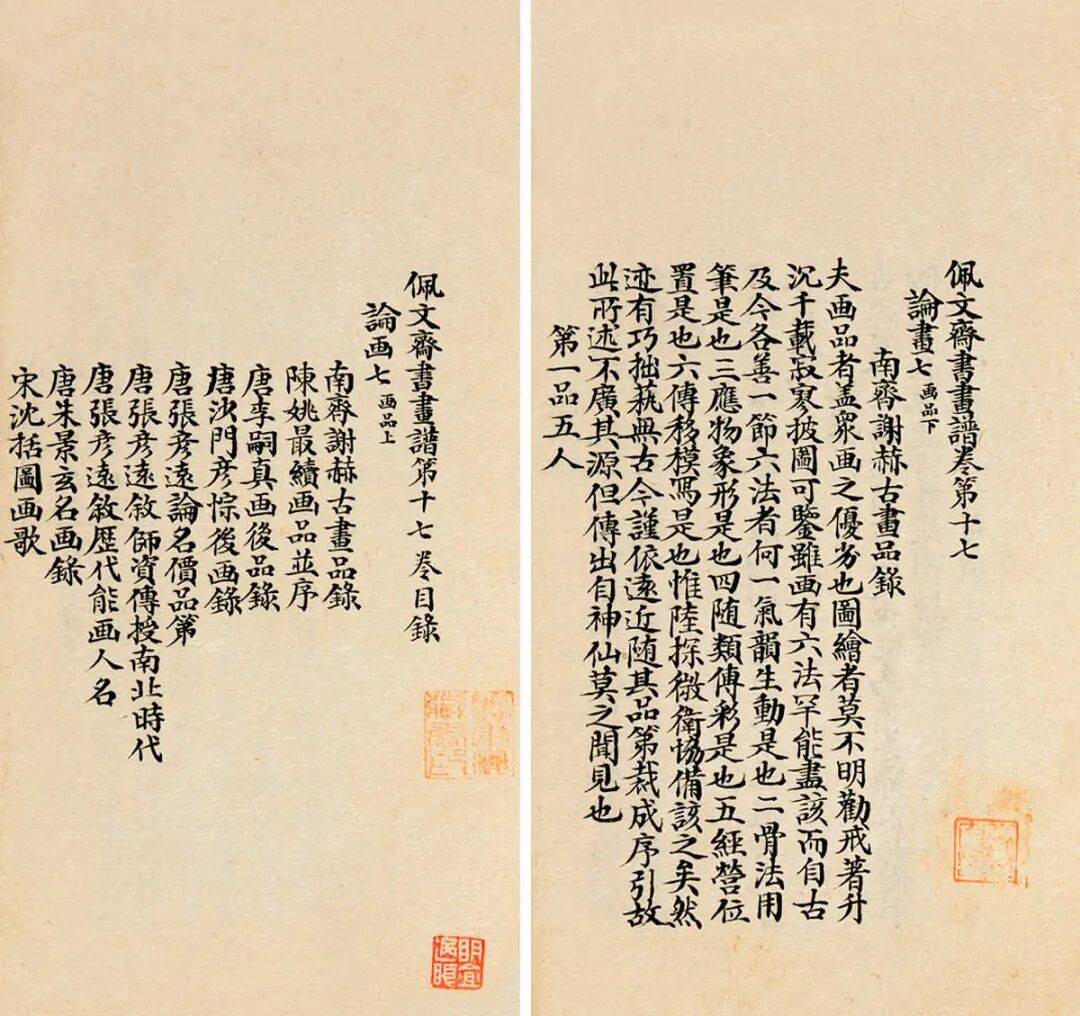 佩文齋書畫譜卷第十七
論畫七 画品下
南齊謝赫古畫品錄
夫画品者盖衆画之優劣也圖繪者莫不明勸戒著升
沉千載寂寥披圖可鑒雖画有六法罕能盡該而自古
及今各善一節六法者何一氣韻生動是也二骨法用
筆是也三應物象形是也四随類傅彩是也五經營位
置是也六傳移模寫是也惟陸探微衛協備該之矣然
迹有巧拙蓺無古今謹依遠近随其品第裁成序引故
此所述不廣其源但傳出自神仙莫之聞見也
第一品五人
佩文齋書畫譜第十七卷目錄
論画七 画品上
南齊謝赫古畫品錄
陳姚最續画品並序
唐李嗣真画後品錄
唐沙門彦悰後画錄
唐張彦遠論名價品第
唐張彦遠敘師資傳授南北時代
唐張彦遠敘歷代能画人名
唐朱景玄名画錄
宋沈括圖画歌